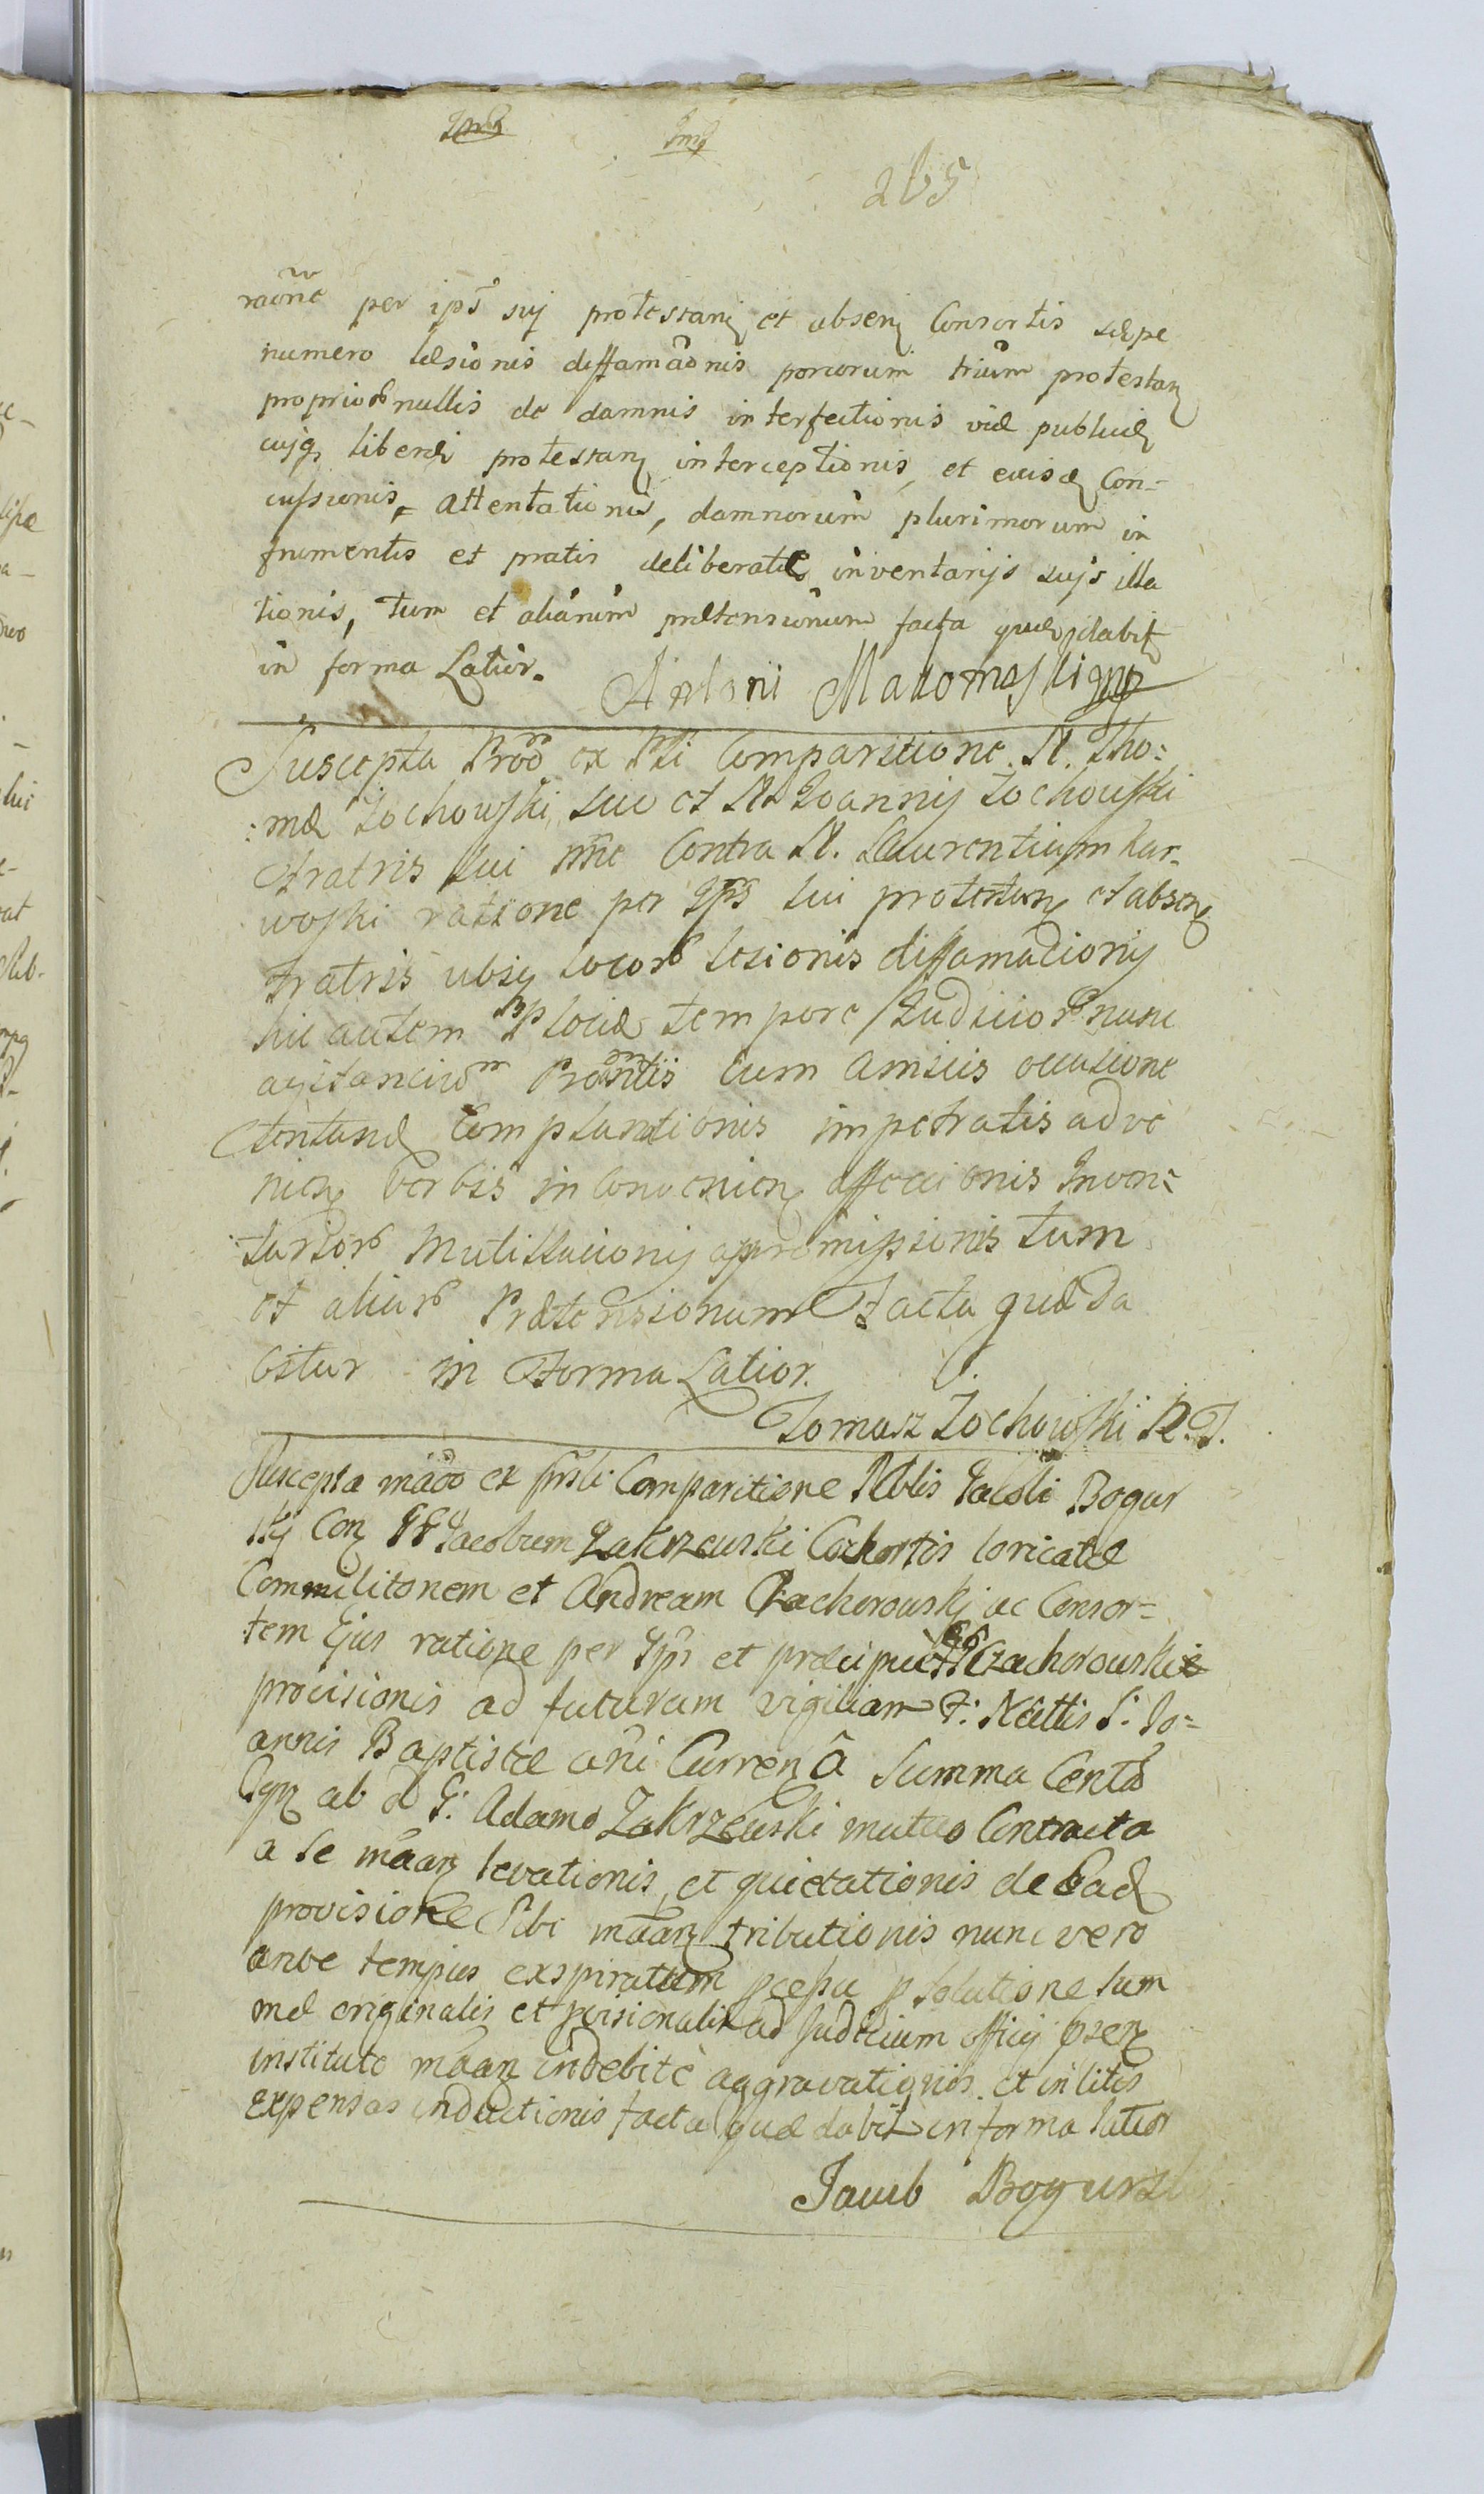 265
raõne per ips suj protestanz et absenz Consortis sæpe
numero læsionis diffamãonis porcorum trium protestanz
proprior nullis de damnis interfectionis viæ publicæ
cujq liberæ protestanz interceptionis, et ejusd Con-
cussionis, attentationis, damnorum plurimorum in
frumentis et pratis deliberate inventarijs sujs illa
tionis, tum et aliarum prætensionum facta quæ dabit
in forma Latior.
Antoni Makomaski
Suscepta Pro ex Psti Comparitione N. Tho:
:mæ Zochowski, suo et N. Joannis Zochowski
Fratris sui nne Contra N. Laurentium Kar-
woski ratione per Ips sui protestanz et absenz
Fratris ubiq locor lesionis diffamacionis
hic autem Plociæ tempore Judicior nunc
agitancium cum amicis occasione
tentand Complanationis impetratis adve
nienz verbis in convenienz affeccionis Inven:
:tarior Mutillacionis tum
et aliar Prætensionum Facta quæ da
bitur in Forma Latior.
Tomasz Zochowski
Suscepta mão ex prsti Comparitione Nblis Jacobi Bogur
skj Con GG Jacobum Zakrzewski Cohortis loricatæ
Commilitonem et Andream Czachorouski ac Consor=
tem Ejus ratione per Ips et præcipue Czachorouskie
procisionis ad futuram vigiliam F: Nattis S: Jo=
annis Baptistæ ani Currenz a Summa Centu
ab G: Adamo Zakrzewski mutuo Contracta
a se mãnz levationis, et quietationis de Ead
provisione sibi mãnz tributionis nunc vero
ante tempus exspiratum p solutione sum
mæ originalis et ad Judicium officij
institute mãnz indebitè aggravationis et in litis
expensas inductionis facta quæ dabit in forma latior
Jacub Bogurski